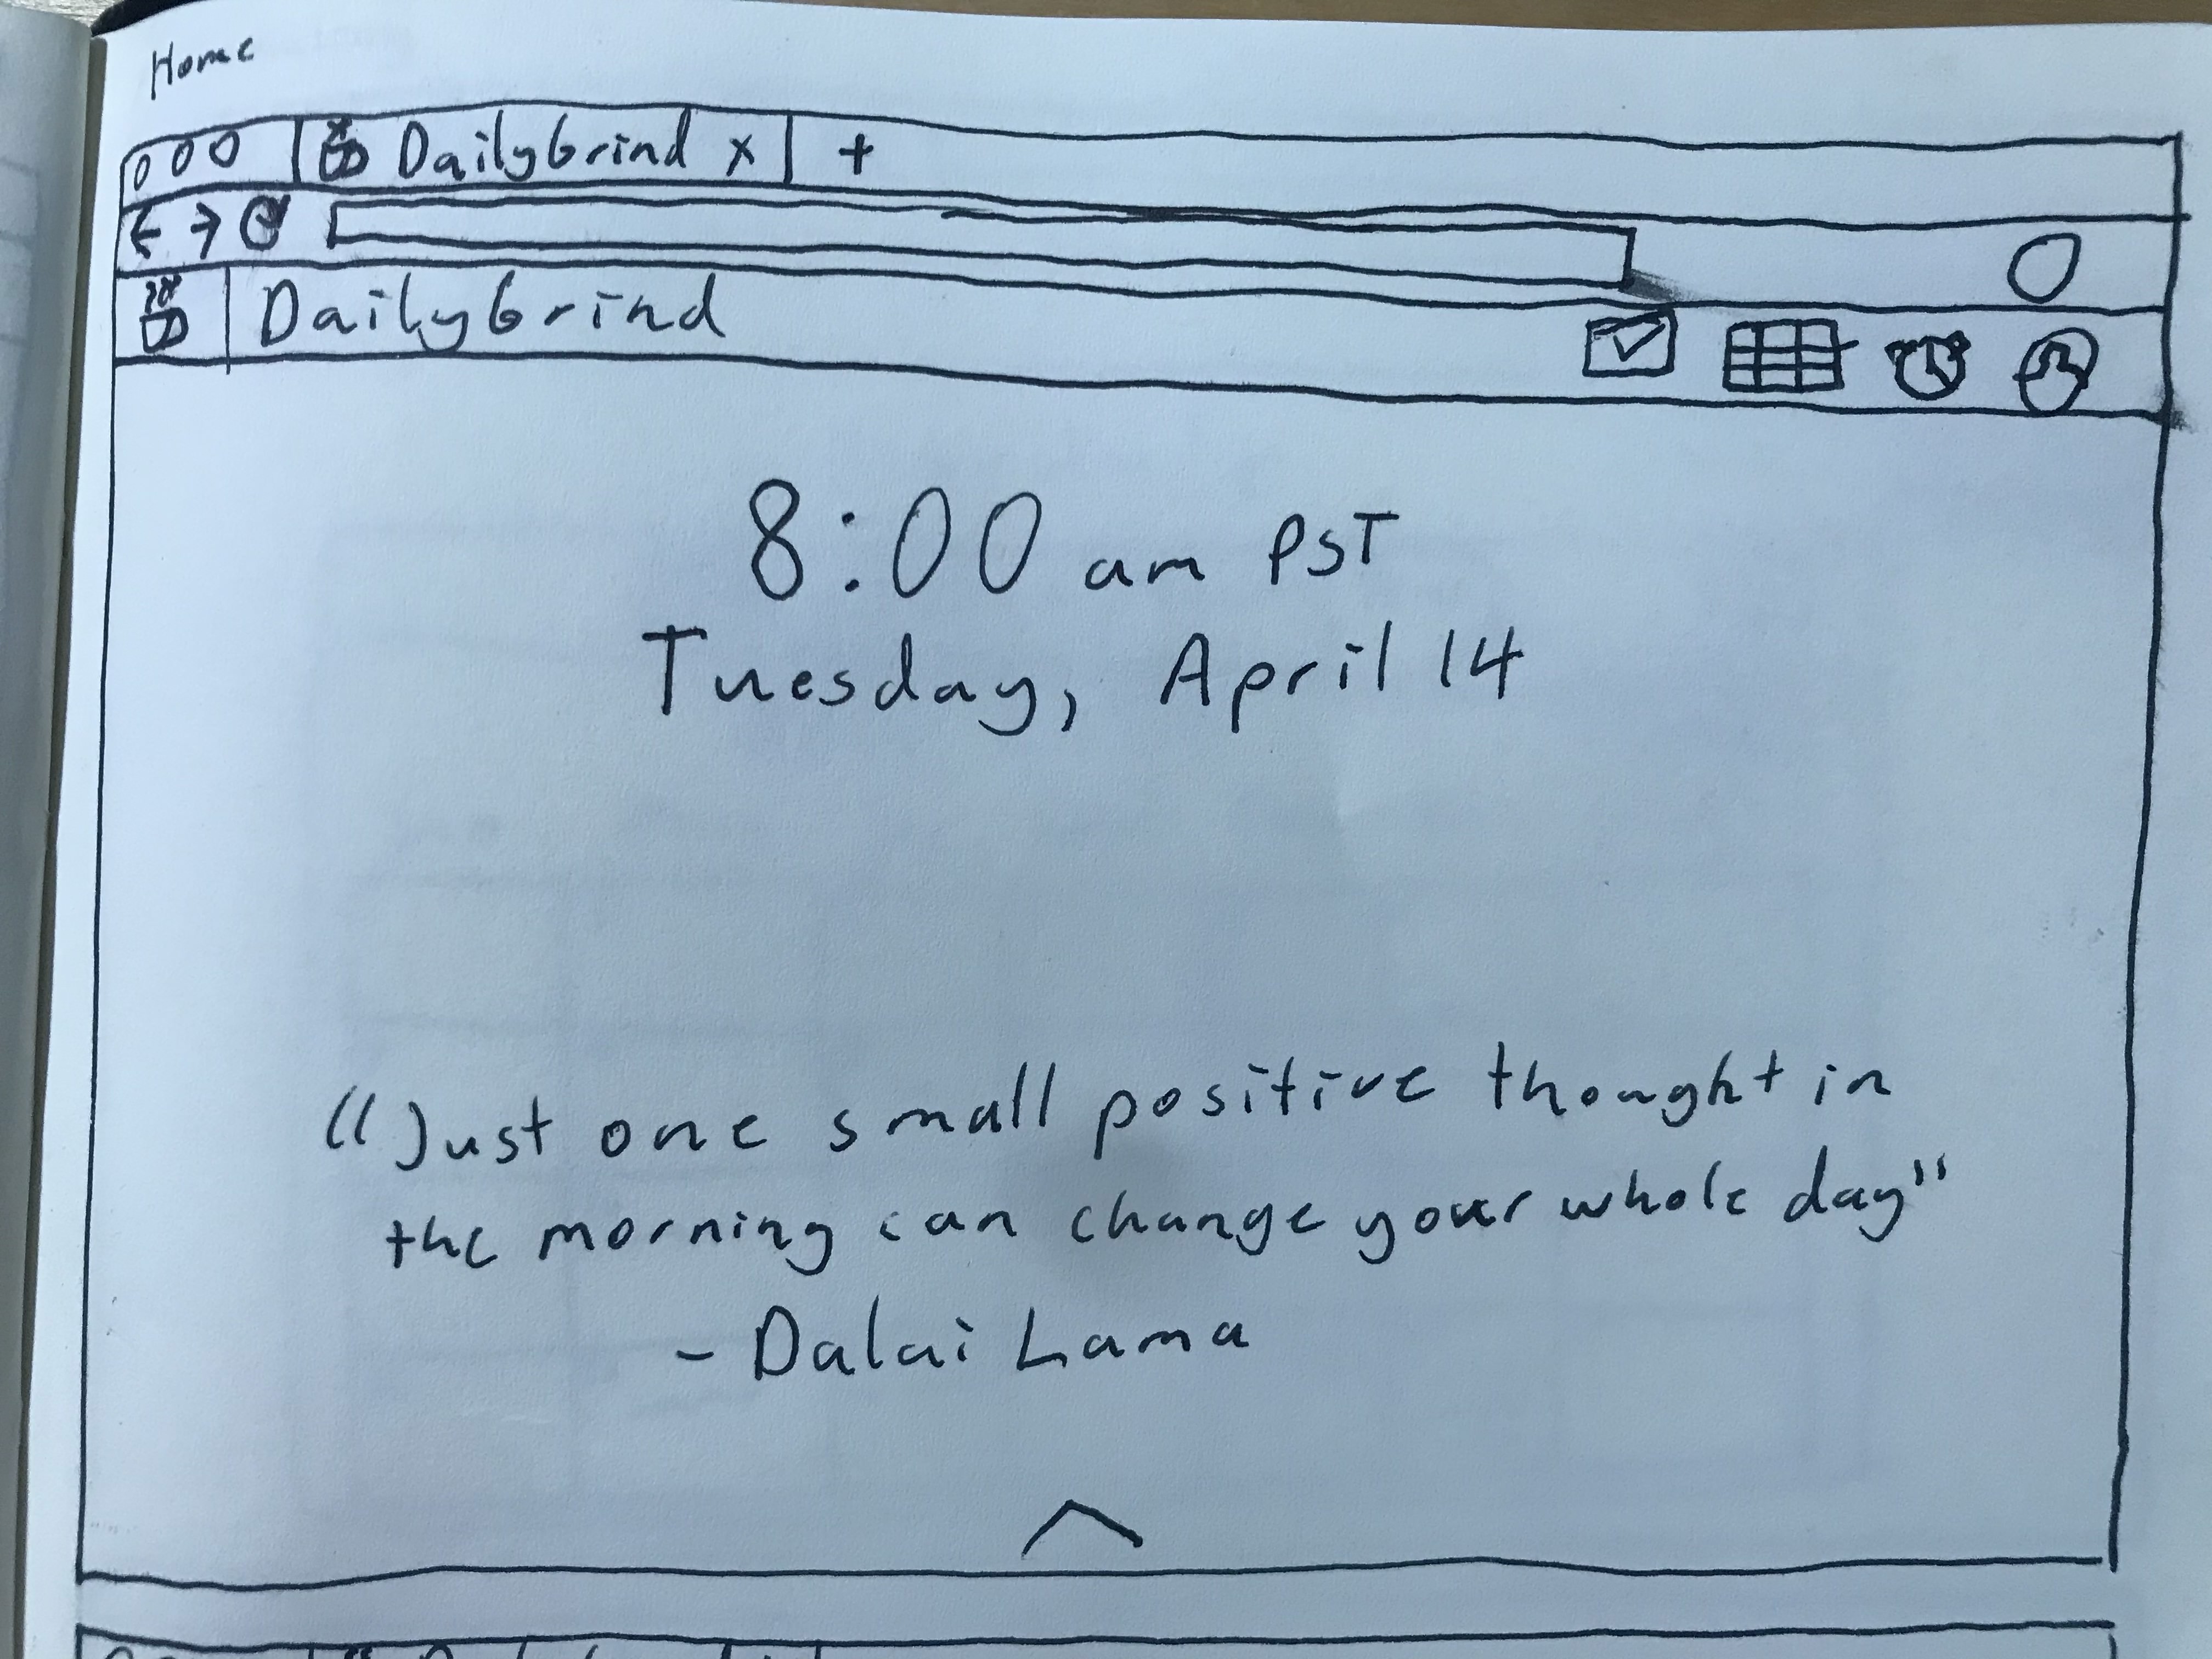 Home
DailyGrind x +
DailyGrind
8:00 am PST
Tuesday, April 14
"Just one small positive thought in
the morning can change your whole day"
- Dalai Lama